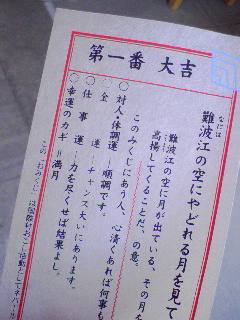 第一番 大吉
なには
難波江の空にやどれる月を見て
難波江の空に月が出ている、その月を
高揚してくることだ、の意。
このみくじにあう人、心清くあれば何事も
○対人・体調運=順調です。
○金 運=チャンス大いにあります。
○仕事運=力を尽くせば結果よし。
○幸運のカギ=満月
この「おみくじ」は国際村おこし